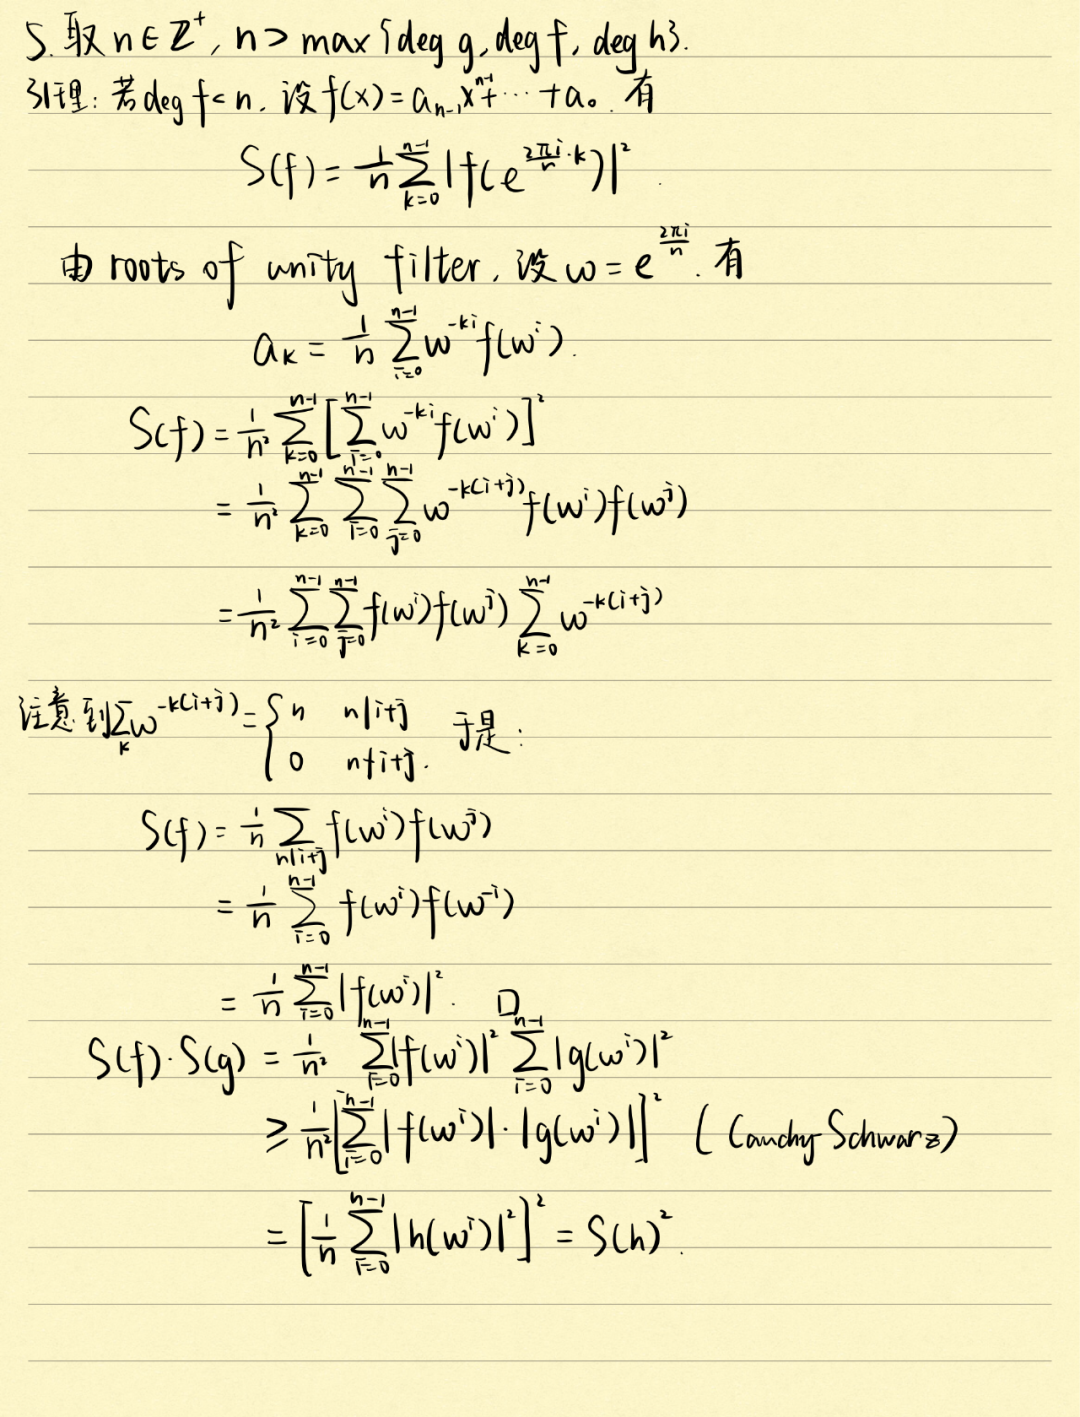 5. 取 n∈Z⁺, n > max{deg g, deg f, deg h}.
引理: 若 deg f < n, 设 f(x) = a_{n-1}x^{n-1} + ⋯ + a₀. 有
S(f) = \frac{1}{n} \sum_{k=0}^{n-1} |f(e^{\frac{2πi}{n}·k})|^2.
由 roots of unity filter, 设 ω = e^{\frac{2πi}{n}}. 有
a_k = \frac{1}{n} \sum_{i=0}^{n-1} ω^{-ki} f(ω^i).
S(f) = \frac{1}{n^2} \sum_{k=0}^{n-1} [\sum_{i=0}^{n-1} ω^{-ki} f(ω^i)]^2
= \frac{1}{n^2} \sum_{k=0}^{n-1} \sum_{i=0}^{n-1} \sum_{j=0}^{n-1} ω^{-k(i+j)} f(ω^i) f(ω^j)
= \frac{1}{n^2} \sum_{i=0}^{n-1} \sum_{j=0}^{n-1} f(ω^i) f(ω^j) \sum_{k=0}^{n-1} ω^{-k(i+j)}
注意到 \sum_k ω^{-k(i+j)} = { n n|i+j 于是:
0 n∤i+j.
S(f) = \frac{1}{n} \sum_{n|i+j} f(ω^i) f(ω^j)
= \frac{1}{n} \sum_{i=0}^{n-1} f(ω^i) f(ω^{-i})
= \frac{1}{n} \sum_{i=0}^{n-1} |f(ω^i)|^2. □
S(f)·S(g) = \frac{1}{n^2} \sum_{i=0}^{n-1} |f(ω^i)|^2 \sum_{i=0}^{n-1} |g(ω^i)|^2
≥ \frac{1}{n^2} [\sum_{i=0}^{n-1} |f(ω^i)|·|g(ω^i)|]^2 (Cauchy-Schwarz)
= [\frac{1}{n} \sum_{i=0}^{n-1} |h(ω^i)|^2]^2 = S(h)^2.